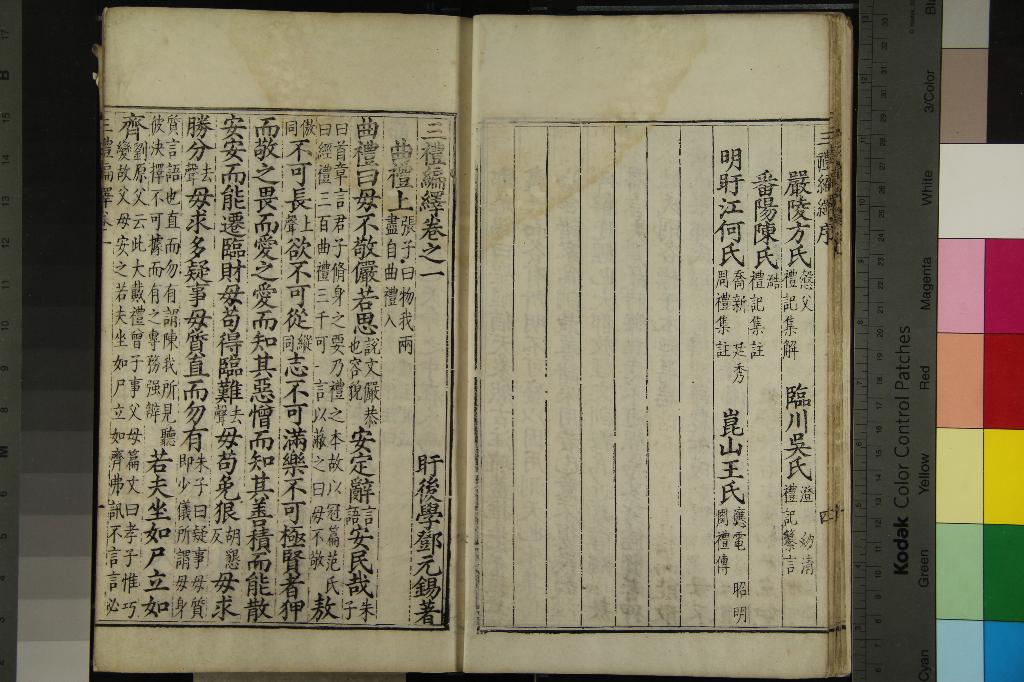 三禮編繹序
嚴陵方氏 慤父 禮記集解 臨川吳氏 澄 幼清 禮記纂言
番陽陳氏 澔 禮記集註
明盱江何氏 喬新 廷秀 周禮集註 崑山王氏 應電 昭明 周禮傳
四
三禮編繹卷之一
盱後學鄧元錫著
曲禮上 張子曰物我兩盡自曲禮入
曲禮曰毋不敬儼若思 說文儼恭也容貌 安定辭 言語 安民哉 朱子
曰首章言君子脩身之要乃禮之本故以冠篇范氏
曰經禮三百曲禮三千可一言以蔽之曰毋不敬 敖
傲同 不可長 上聲 欲不可從 縱同 志不可滿樂不可極賢者狎
而敬之畏而愛之愛而知其惡憎而知其善積而能散
安安而能遷臨財毋苟得臨難 去聲 毋苟免狠 胡懇反 毋求
勝分 去聲 毋求多疑事毋質直而勿有 朱子曰疑事毋質即少儀所謂毋身
質言語也直而勿有謂陳我所見聽
彼決擇不可據而有之專務強辯 若夫坐如尸立如
齊 劉原父云此大戴禮曾子事父母篇文曰孝子惟巧變故父母安之若夫坐如尸立如齊弗訊不言言必
三禮編繹卷一
一
Kodak Color Control Patches
Cyan
Green
Yellow
Red
Magenta
White
3/Color